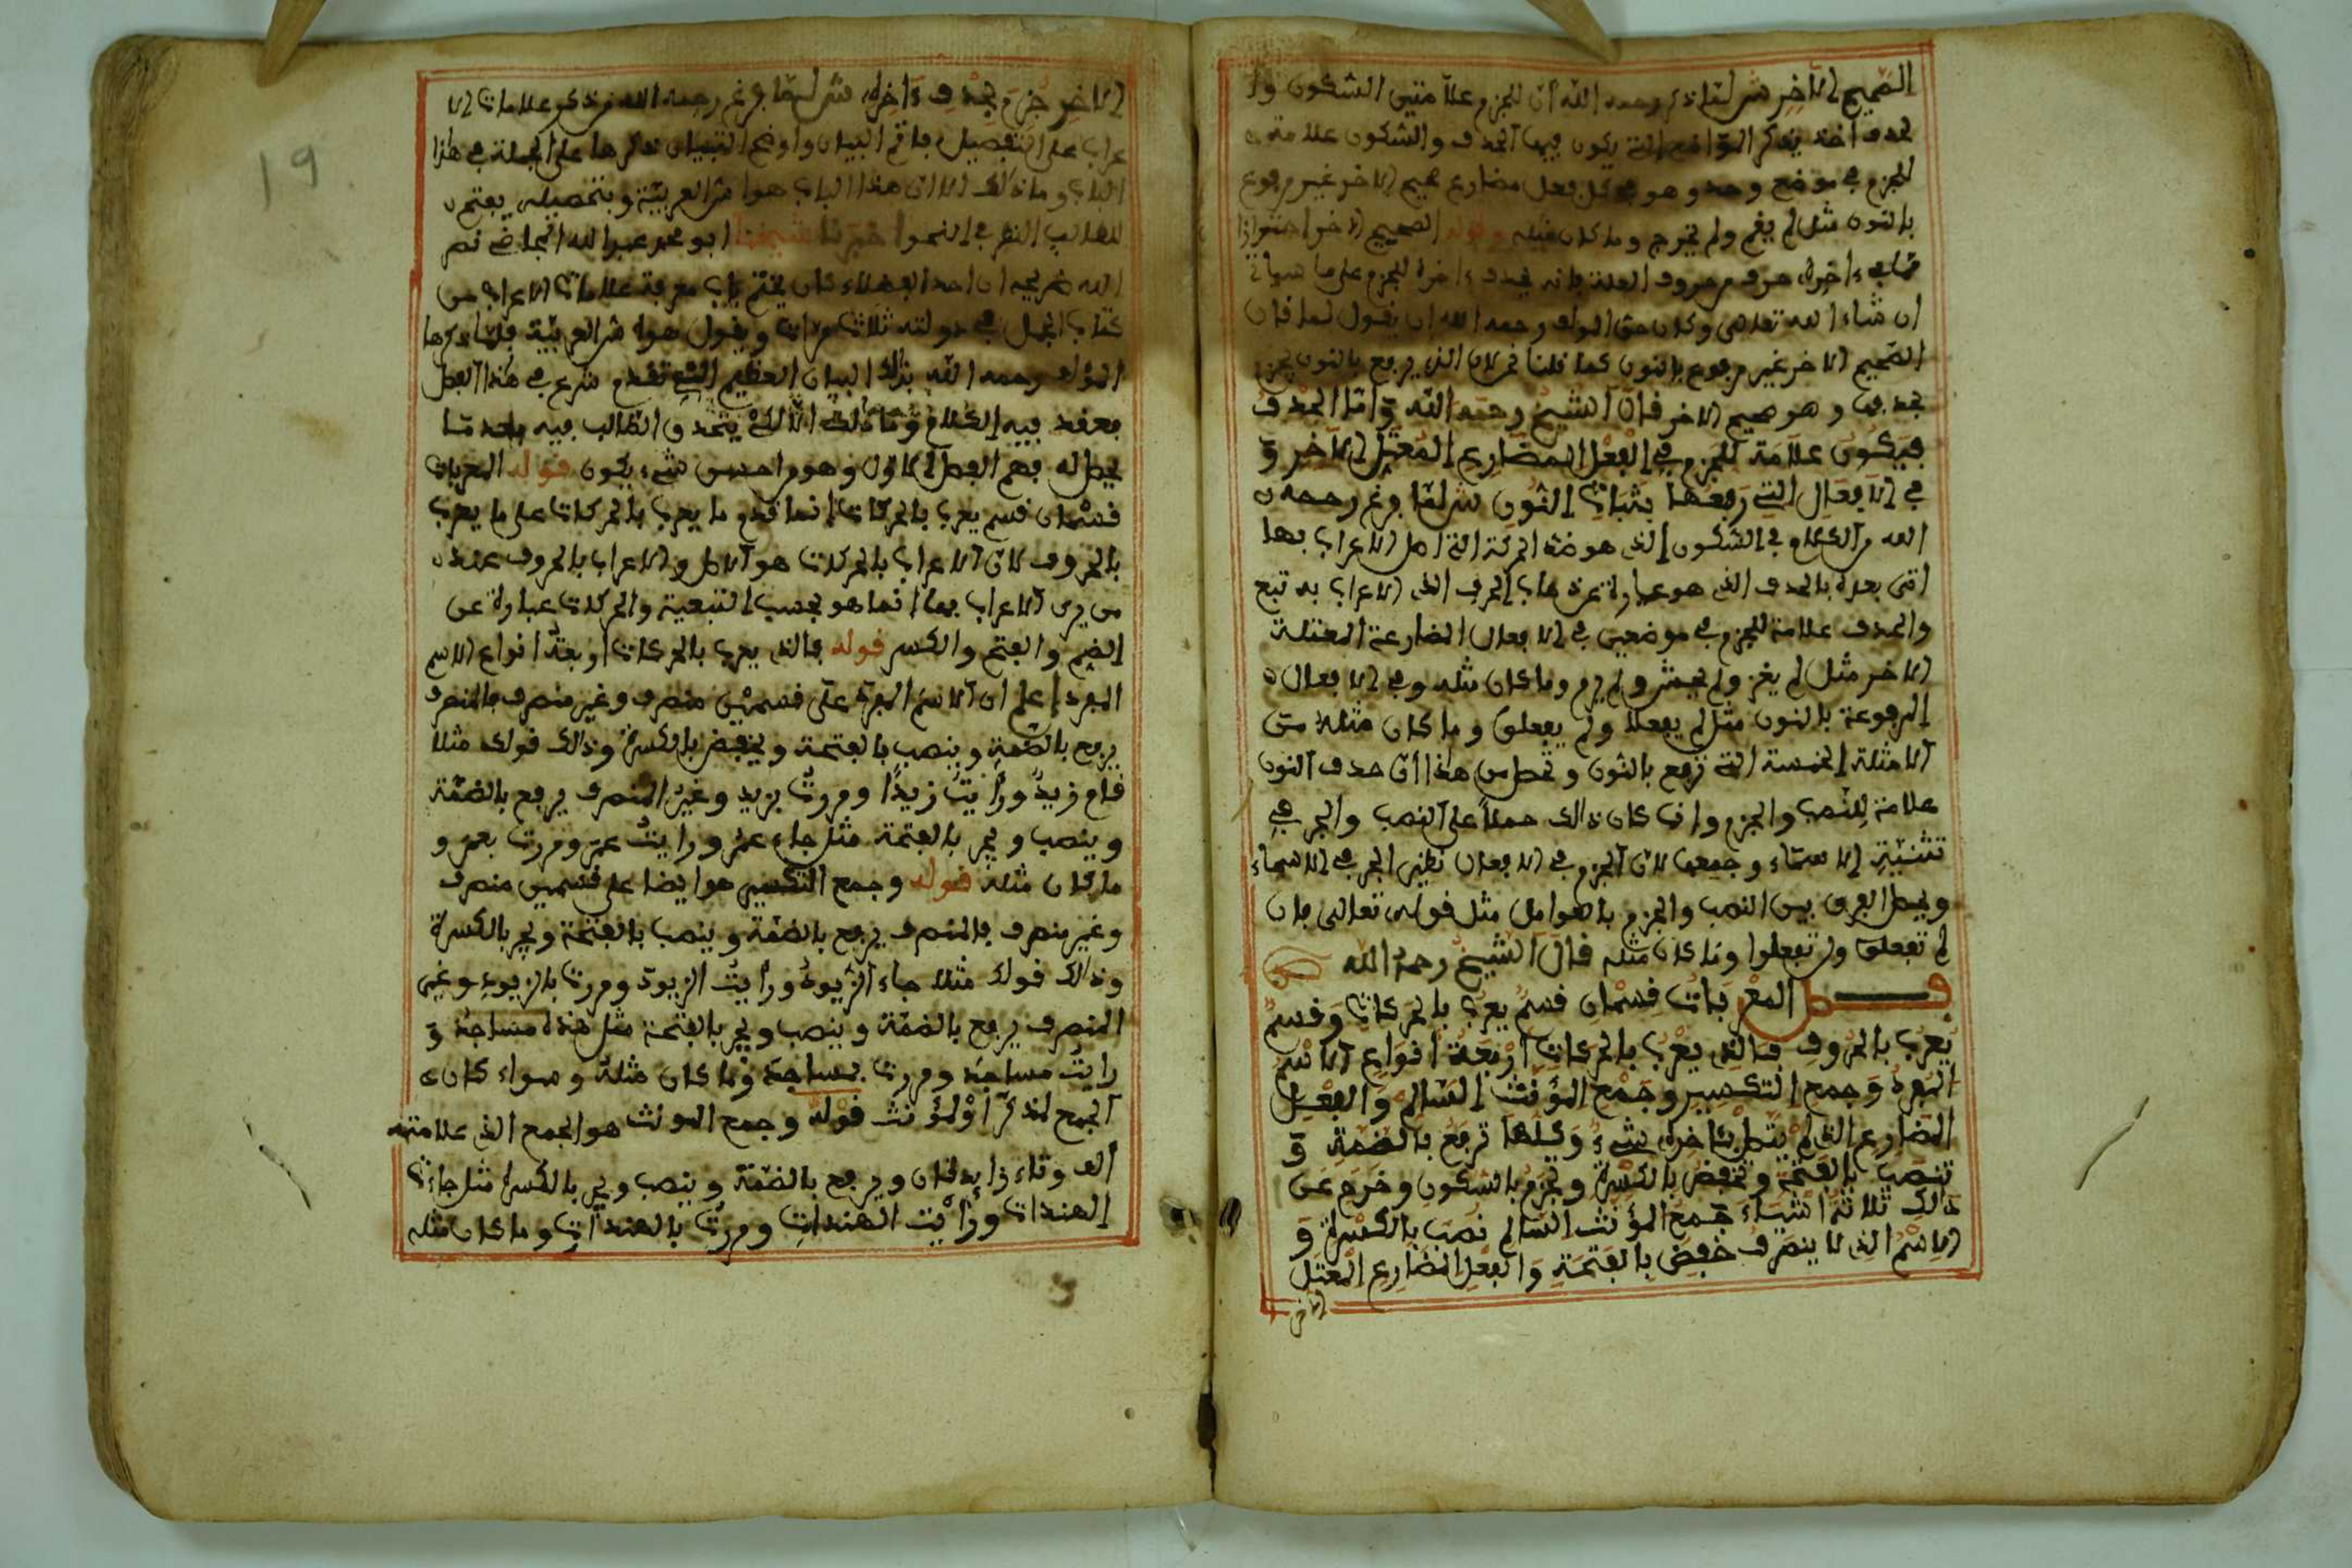 الصحيح الآخر ش لما ذكر رحمه الله أن للجزم علامتين السكون وا
لحذف أخذ يذكر المواضع التي يكون فيها الحذف والسكون علامة
للجزم في موضع وحد وهو في كل فعل مضارع صحيح الاخر غير مرفوع
بالنون مثل لم يقم ولم يخرج وما كان مثله وقوله الصحيح الاخر احترازا
مما في ءاخره حرف من حروف العلة فانه يحذف ءاخره للجزم على ما سيأتي
ان شاء الله تعالى وكان حق المولف رحمه الله ان يقول لما قال
الصحيح الاخر غير مرفوع بالنون كما قلنا لان الذي يرفع بالنون يجزم
بحذفها وهو صحيح الاخر قال الشيخ رحمه الله وَأما الحذف
فيكون علامة للجزم في الفعل المضارع المعتل الآخر وَ
في الأفعال التي رفعها بثبات النون ش لما فرغ رحمه
الله من الكلام في السكون الذي هو ضد الحركة التي اصل الاعراب بها
اتى بعده بالحذف الذي هو عبارة عن ذهاب الحرف الذي الاعراب به تبع
والحذف علامة للجزم في موضعين في الافعال المضارعة المعتلة
الاخر مثل لم يغز ولم يخش ولم يرم وما كان مثله وفي الافعال
المرفوعة بالنون مثل لم يفعلا ولم يفعلوا وما كان مثله من
الامثلة الخمسة التي ترفع بالنون وتحصل من هذا أن حذف النون
علامة للنصب والجزم وإن كان ذالك حملاً على النصب والجر في
تثنية الاسماء وجمعها لان الجزم في الافعال نظير الجر في الاسماء
ويحصل الفرق بين النصب والجزم بالعوامل مثل قوله تعالى فإن
لم تفعلوا ولن تفعلوا وما كان مثله قال الشيخ رحمه الله
فصل المعْربَاتُ قِسْمَانِ قسمٌ يعربُ بالحَركاتِ وَقسمٌ
يُعربُ بالحُروفِ فالذي يعْربُ بالحركاتِ أرْبعَةُ أنوَاعٍ الاسْمُ
المفردُ وَجمع التكسير وجَمْعُ المؤنثِ السّالمُ والفِعْلُ
المضارعُ الذي لمْ يتّصلْ بئاخرهِ شيءٌ وَكلها ترفعُ بالضمةِ وَ
تنصبُ بالفتحَةِ وتخفض بالكسْرةِ وتجزمُ بالسّكونِ وخرج عَن
ذالكَ ثلاثةُ أشيَاء جمعُ المؤنث السّالم نصبَ بالكسْرةِ وَ
الاسْمُ الذي لا ينصرفُ خفض بالفتحَةِ وَالفِعْل المضارع المعْتل
الآخر
الاخرِ جُزِمَ بحذف ءَاخِرِهِ ش لما فرغ رحمه الله من ذكر علامات الا
عراب على التفصيل فأتم البيان واوضح التبيان ذكرها على الجملة في هذا
الباب وما ذالك إلا ان هذا الباب هو اس العربية وبتحصيله يفتح
للطالب النظر في النحو اخبرنا شيخنا ابو محمد عبد الله القاضي
الله ضريحه ان احد الفضلاء كان يختم باب معرفة علامات الاعراب من
كتاب الجمل في دولته ثلاث مرات ويقول هو اس العربية فلما ذكرها
المؤلف رحمه الله بذلك البيان العظيم الذي تقدم شرع في هذا الفصل
فعقد فيه الكلام وما ذلك الا لكي يتحذق الطالب فيه بعد ما
يحصل له فهم الفصل الاول وهو من احسن شيء يكون قوله المعربات
قسمان قسم يعرب بالحركات انما قدم ما يعرب بالحركات على ما يعرب
بالحروف لان الاعراب بالحركات هو الاصل والاعراب بالحروف عند
من يرى الاعراب بها انما هو بحسب التبعية والحركات عبارة عن
الضم والفتح والكسر قوله فالذي يعرب بالحركات أربعة أنواع الاسم
المفرد إعلم ان الاسم المفرد على قسمين منصرف وغير منصرف فالمنصرف
يرفع بالضمة وينصب بالفتحة ويخفض بالكسرة وذالك قولك مثلا
قام زيدٌ ورأيتُ زيدًا ومررتُ بزيدٍ وغير المنصرف يرفع بالضمة
وينصب ويجر بالفتحة مثل جاء عمرُ ورايتُ عمرَ ومررت بعمرَ و
ما كان مثله قوله وجمع التكسير هو ايضا على قسمين منصرف
وغير منصرف فالمنصرف يرفع بالضمة وينصب بالفتحة ويجر بالكسرة
وذالك قولك مثلا جاء الزيودُ ورأيتُ الزيودَ ومررت بالزيودِ وغير
المنصرف يرفع بالضمة وينصب ويجر بالفتحة مثل هذه مساجدُ وَ
رايتُ مساجدَ ومررت بمساجدَ وما كان مثله وسواء كان
الجمع لمذكر أوْ لمؤنث قوله وجمع المونث هو الجمع الذي علامته
ألف وتاء زايدتان ويرفع بالضمة وينصب ويجر بالكسرة مثل جاءت
الهنداتُ ورأيْت الهنداتِ ومررتُ بالهنداتِ وما كان مثله
19